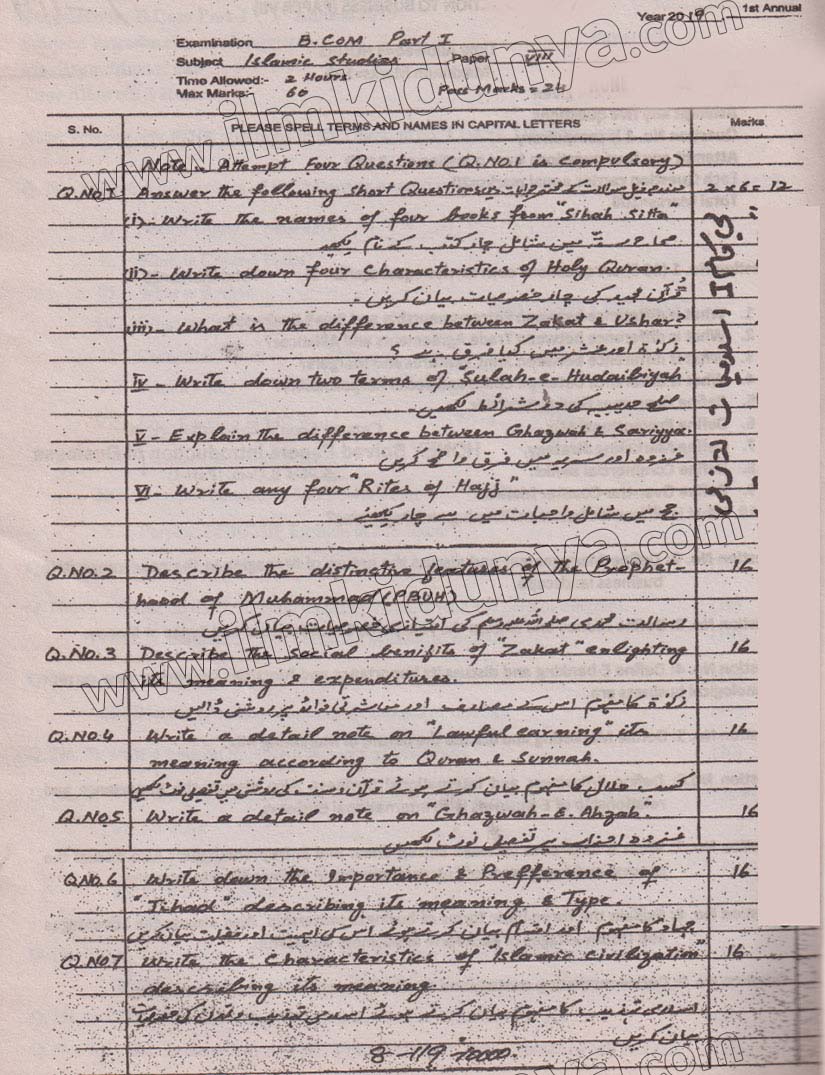 Year 2019 1st Annual
Examination B.COM Part I
Subject Islamic Studies Paper VIII
Time Allowed:- 2 Hours
Max Marks:- 60 Pass Marks = 24
S. No. PLEASE SPELL TERMS AND NAMES IN CAPITAL LETTERS Marks
Note:- Attempt Four Questions (Q.NO.1 is Compulsory)
Q.NO.1 Answer the following short Questions 2 x 6 = 12
(i)- Write the names of four books from "Sihah Sitta"
صحاح ستہ میں شامل چار کتب کے نام لکھیے
(ii)- Write down four characteristics of Holy Quran.
قرآن مجید کی چار خصوصیات بیان کریں۔
(iii)- What is the difference between Zakat & Ushar?
زکوٰۃ اور عشر میں کیا فرق ہے ؟
IV - Write down two terms of "Sulah-e-Hudaibiyah"
صلح حدیبیہ کی دو شرائط لکھیں۔
V - Explain the difference between Ghazwah & Sariyya.
غزوہ اور سریہ میں فرق واضح کریں
VI- Write any four "Rites of Hajj"
حج میں شامل واجبات میں سے چار لکھیئے۔
Q.NO.2 Describe the distinctive features of the Prophet- 16
hood of Muhammad (PBUH)
رسالت محمدی صلی اللہ علیہ وسلم کی امتیازی خصوصیات بیان کریں
Q.NO.3 Describe the social benifits of "Zakat" enlighting 16
its meaning & expenditures.
زکوٰۃ کا مفہوم اس کے مصارف اور معاشرتی فوائد پر روشنی ڈالیں
Q.NO.4 Write a detail note on "Lawful earning" its 16
meaning according to Quran & Sunnah.
کسب حلال کا مفہوم بیان کرتے ہوئے قرآن و سنت کی روشنی میں تفصیلی نوٹ لکھیں
Q.NO.5 Write a detail note on "Ghazwah-E-Ahzab". 16
غزوہ احزاب پر تفصیلی نوٹ لکھیں
Q.NO.6 Write down the Importance & Prefference of 16
"Jihad" describing its meaning & Type.
جہاد کا مفہوم اور اقسام بیان کرتے ہوئے اس کی اہمیت اور فضیلت بیان کریں
Q.NO.7 Write the Characteristics of "Islamic Civilization" 16
describing its meaning.
اسلامی تہذیب کا مفہوم بیان کرتے ہوئے اسلامی تہذیب و تمدن کی خصوصیات
بیان کریں
بی کام I اسلامیات لازمی
www.ilmkidunya.com
www.ilmkidunya.com
www.ilmkidunya.com